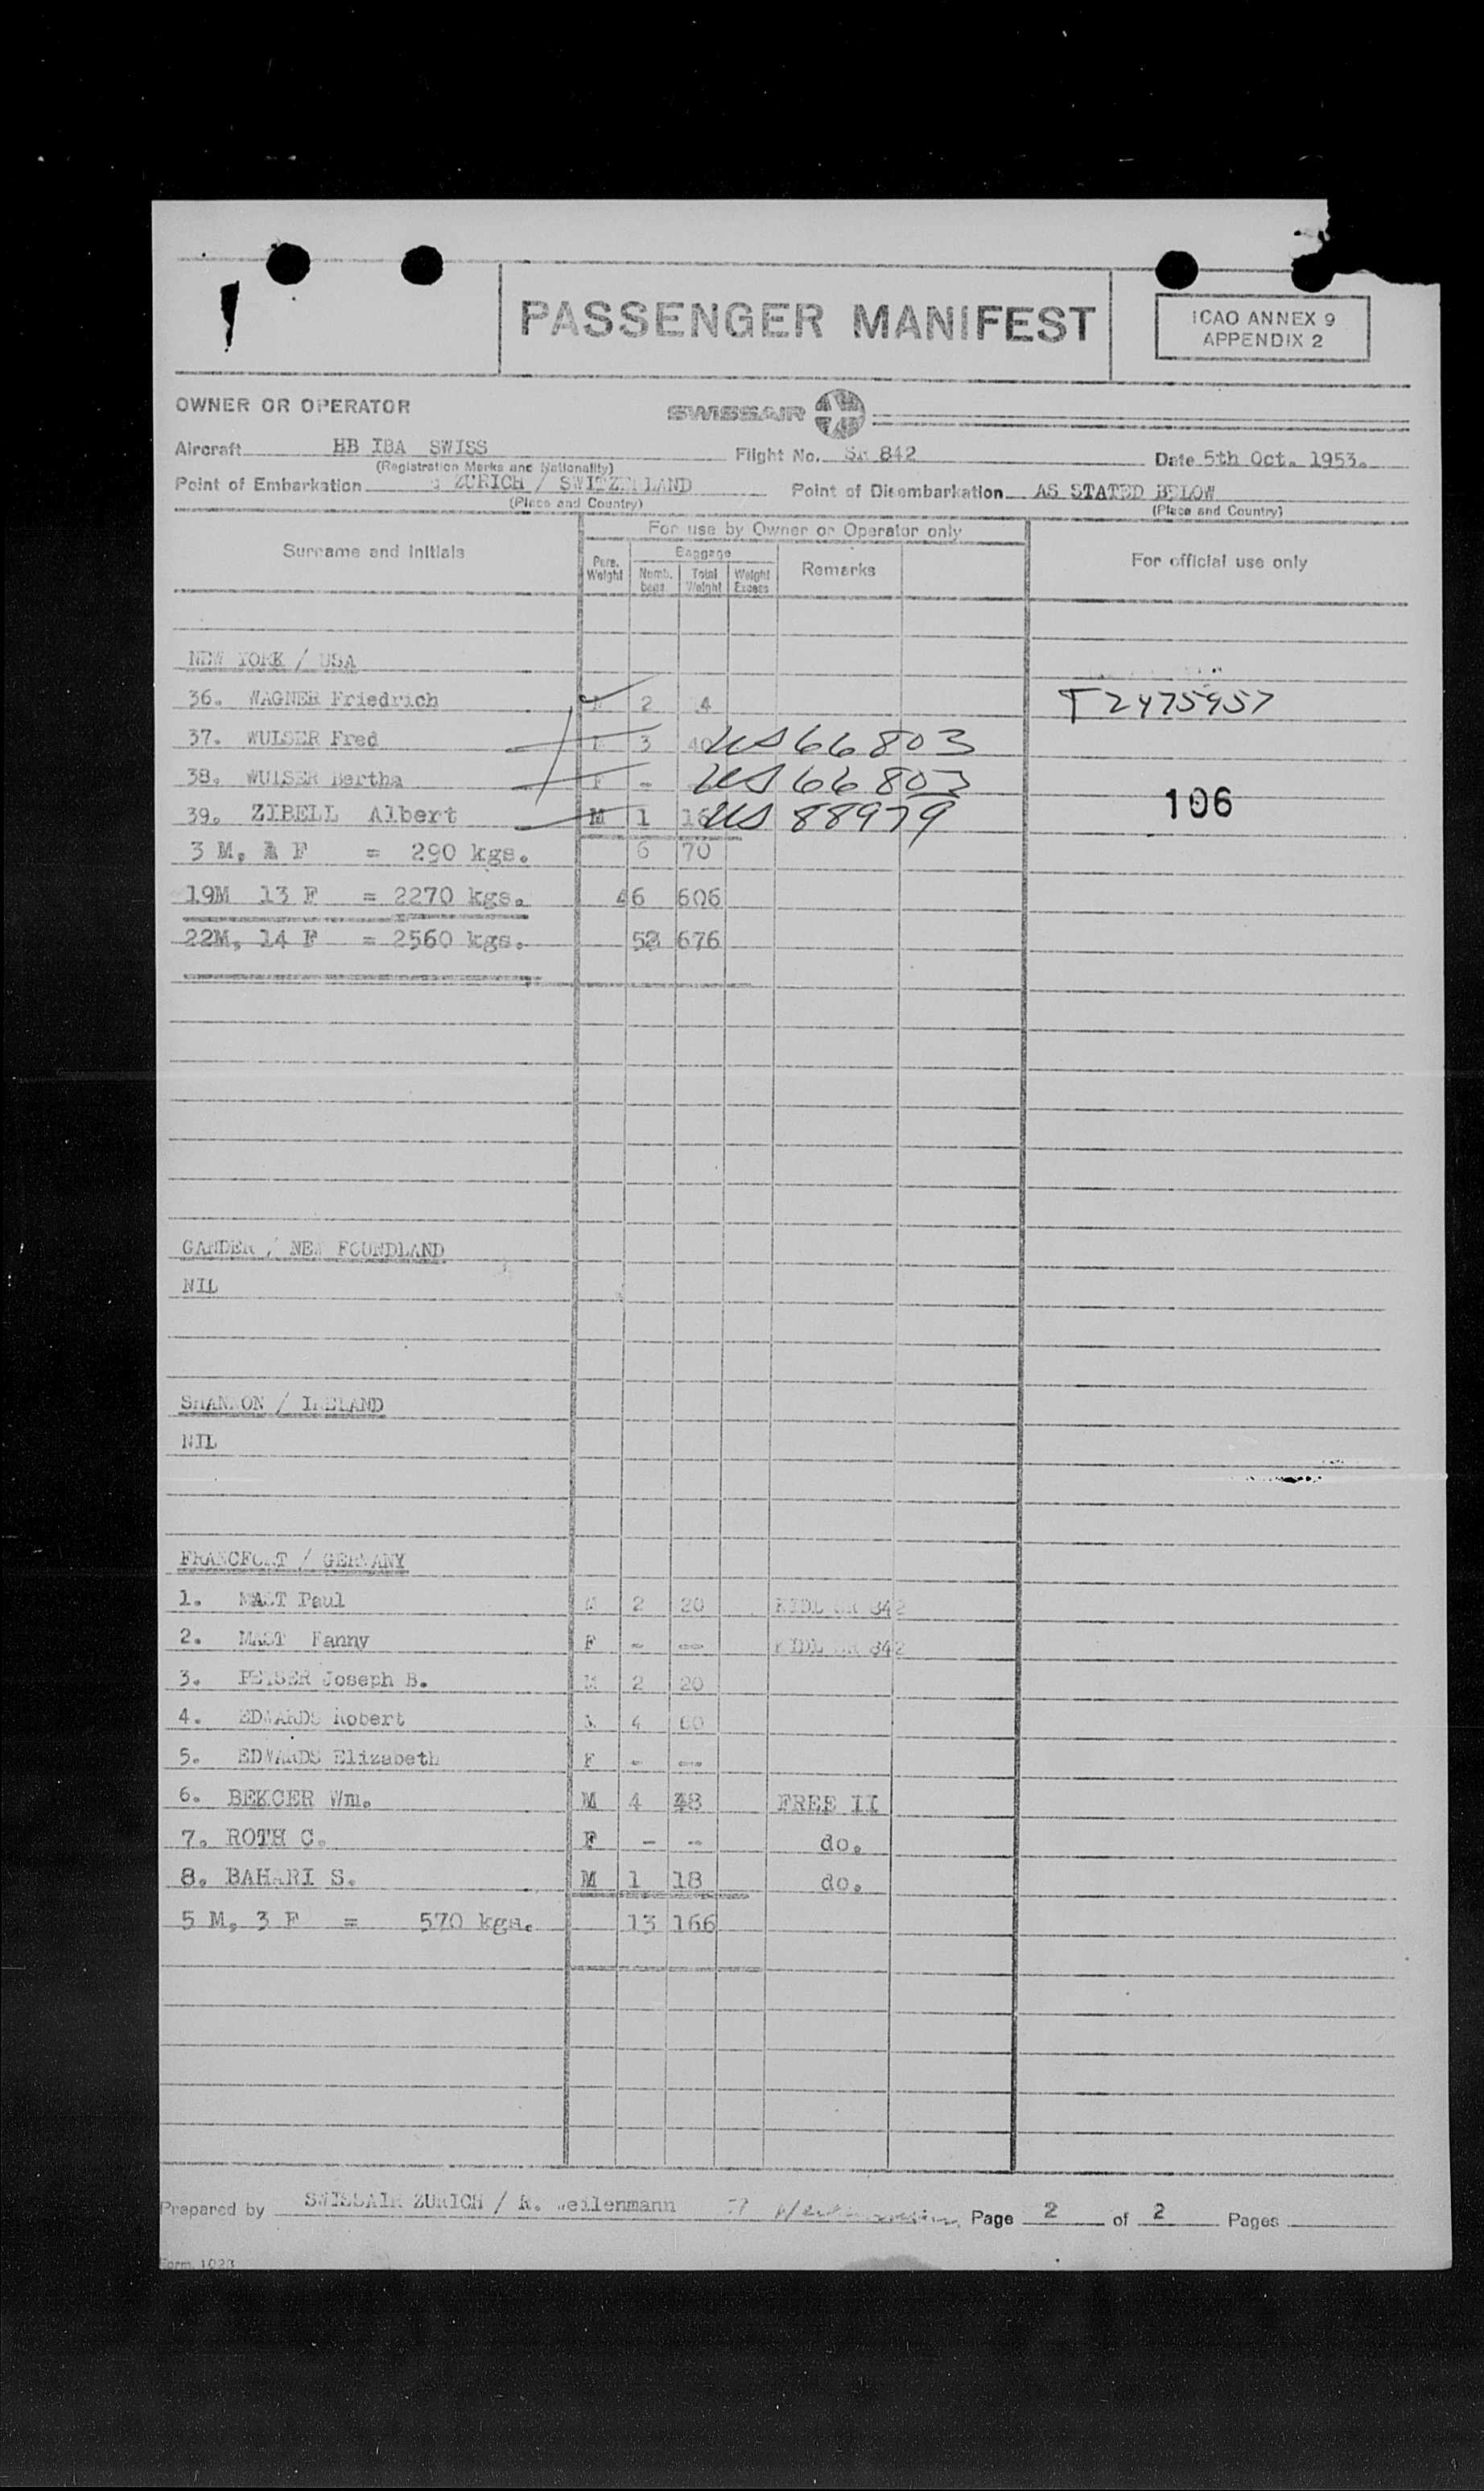 PASSENGER MANIFEST
ICAO ANNEX 9
APPENDIX 2
OWNER OR OPERATOR
SWISSAIR
Aircraft HB IBA SWISS Flight No. SR 842 Date 5th Oct. 1953.
(Registration Marks and Nationality)
Point of Embarkation ZURICH / SWITZERLAND Point of Disembarkation AS STATED BELOW
(Place and Country) (Place and Country)
Surname and initials
For use by Owner or Operator only
For official use only
Pers. Weight
Baggage
Numb. bags
Total Weight
Weight Excess
Remarks
NEW YORK / USA
36. WAGNER Friedrich 2 4 T2475957
37. WULSER Fred 3 40 US 66803
38. WULSER Bertha F - US 66803
39. ZIBELL Albert M 1 16 US 88979
106
3 M, 1 F = 290 kgs. 6 70
19M 13 F = 2270 kgs. 46 606
22M, 14 F = 2560 kgs. 52 676
GANDER / NEW FOUNDLAND
NIL
SHANNON / IRELAND
NIL
FRANCFORT / GERMANY
1. MAST Paul M 2 20 842
2. MAST Fanny F - -- 842
3. PEISER Joseph B. M 2 20
4. EDWARDS Robert M 4 60
5. EDWARDS Elizabeth F - --
6. BEKCER Wm. M 4 48 FREE II
7. ROTH C. F - -- do.
8. BAHARI S. M 1 18 do.
5 M, 3 F = 570 kgs. 13 166
Prepared by SWISSAIR ZURICH / R. Weilenmann Page 2 of 2 Pages
Form. 1023